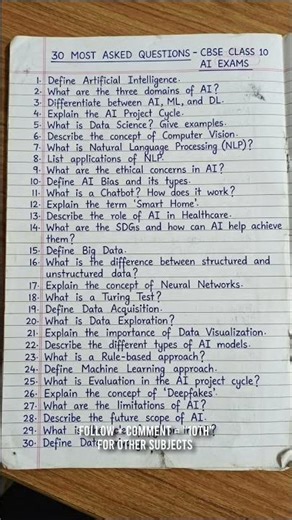 30 MOST ASKED QUESTIONS - CBSE CLASS 10
AI EXAMS
1. Define Artificial Intelligence.
2. What are the three domains of AI?
3. Differentiate between AI, ML, and DL.
4. Explain the AI Project Cycle.
5. What is Data Science? Give examples.
6. Describe the concept of Computer Vision.
7. What is Natural Language Processing (NLP)?
8. List applications of NLP.
9. What are the ethical concerns in AI?
10. Define AI Bias and its types.
11. What is a Chatbot? How does it work?
12. Explain the term 'Smart Home'.
13. Describe the role of AI in Healthcare.
14. What are the SDGs and how can AI help achieve
them?
15. Define Big Data.
16. What is the difference between structured and
unstructured data?
17. Explain the concept of Neural Networks.
18. What is a Turing Test?
19. Define Data Acquisition.
20. What is Data Exploration?
21. Explain the importance of Data Visualization.
22. Describe the different types of AI models.
23. What is a Rule-based approach?
24. Define Machine Learning approach.
25. What is Evaluation in the AI project cycle?
26. Explain the concept of 'Deepfakes'.
27. What are the limitations of AI?
28. Describe the future scope of AI.
29. What is
FOLLOW & COMMENT - "10TH"
FOR OTHER SUBJECTS
30. Define Data